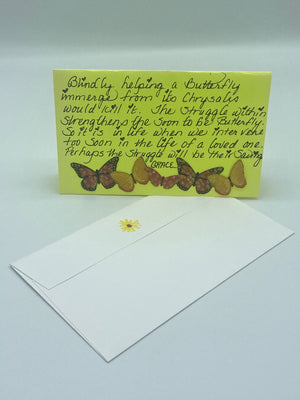 Blindly helping a Butterfly
immerge from its Chrysalis
would kill it. The Struggle within
Strengthens the Soon to be Butterfly.
So it is in life when we intervene
too Soon in the life of a loved one.
Perhaps the Struggle will be their Saving
GRACE